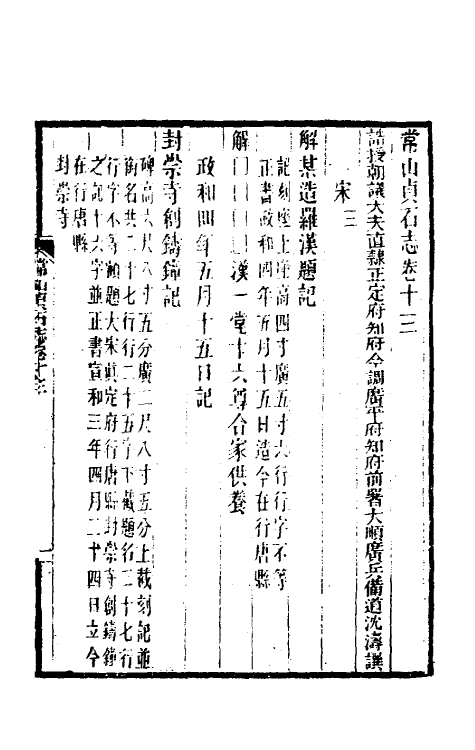 常山貞石志卷十三
誥授朝議大夫直隸正定府知府今調廣平府知府前署大順廣兵備道沈濤譔
宋三
解某造羅漢題記
記刻座上座高四寸廣五寸六行行字不等
正書政和四年五月十五日造今在行唐縣
解口口口口漢一堂十六尊合家供養
政和四年五月十五日記
封崇寺創鑄鐘記
碑高六尺八寸五分廣二尺八寸五分上截刻記並
銜名共二十七行行二十五字下截題名二十七行
行字不等額題大宋真定府行唐縣封崇寺創鑄鐘
之記十六字並正書宣和三年四月二十四日立今
在行唐縣
封崇寺
常山貞石志卷十三